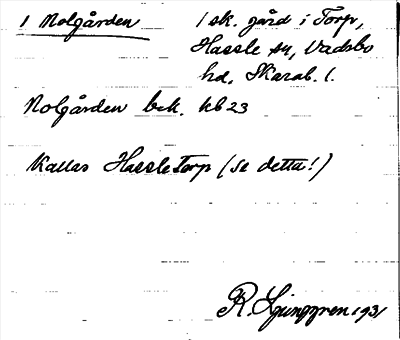 1 Nolgården
1 sk. gård i Torp,
Hassle sn, Vadsbo
hd, Skarab. l.
Nolgården bek. kb 23
Kallas Hassletorp (se detta!)
R. Ljunggren 1931